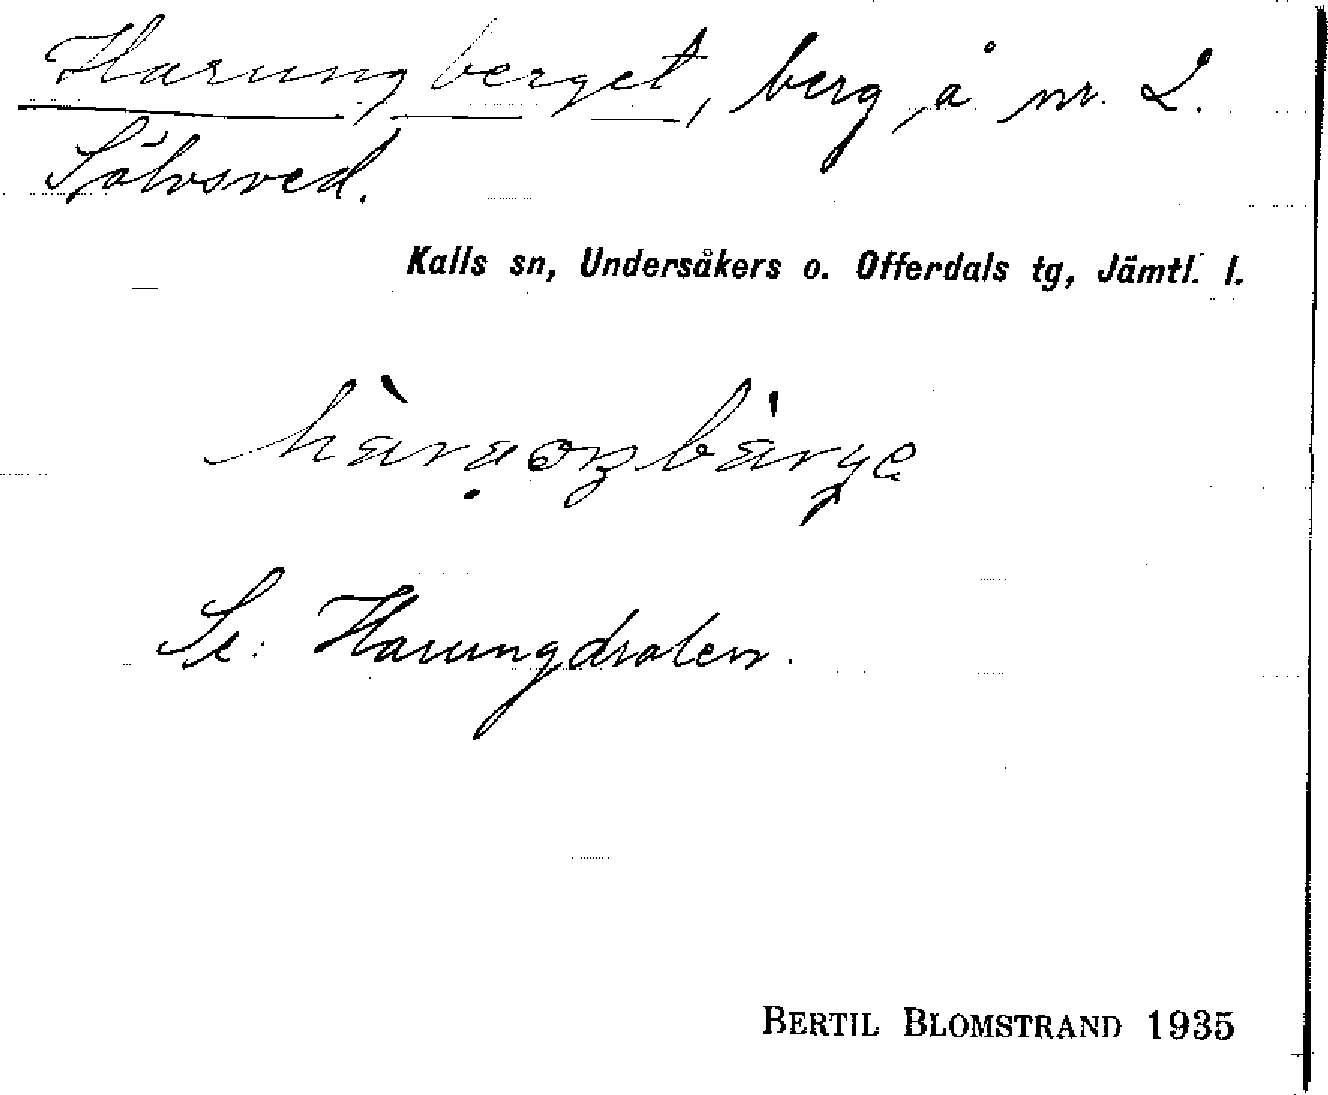 Harungberget, berg å nr. 2.
Sölvsved.
Kalls sn, Undersåkers o. Offerdals tg, Jämtl. l.
Se: Harungdralen.
BERTIL BLOMSTRAND 1935